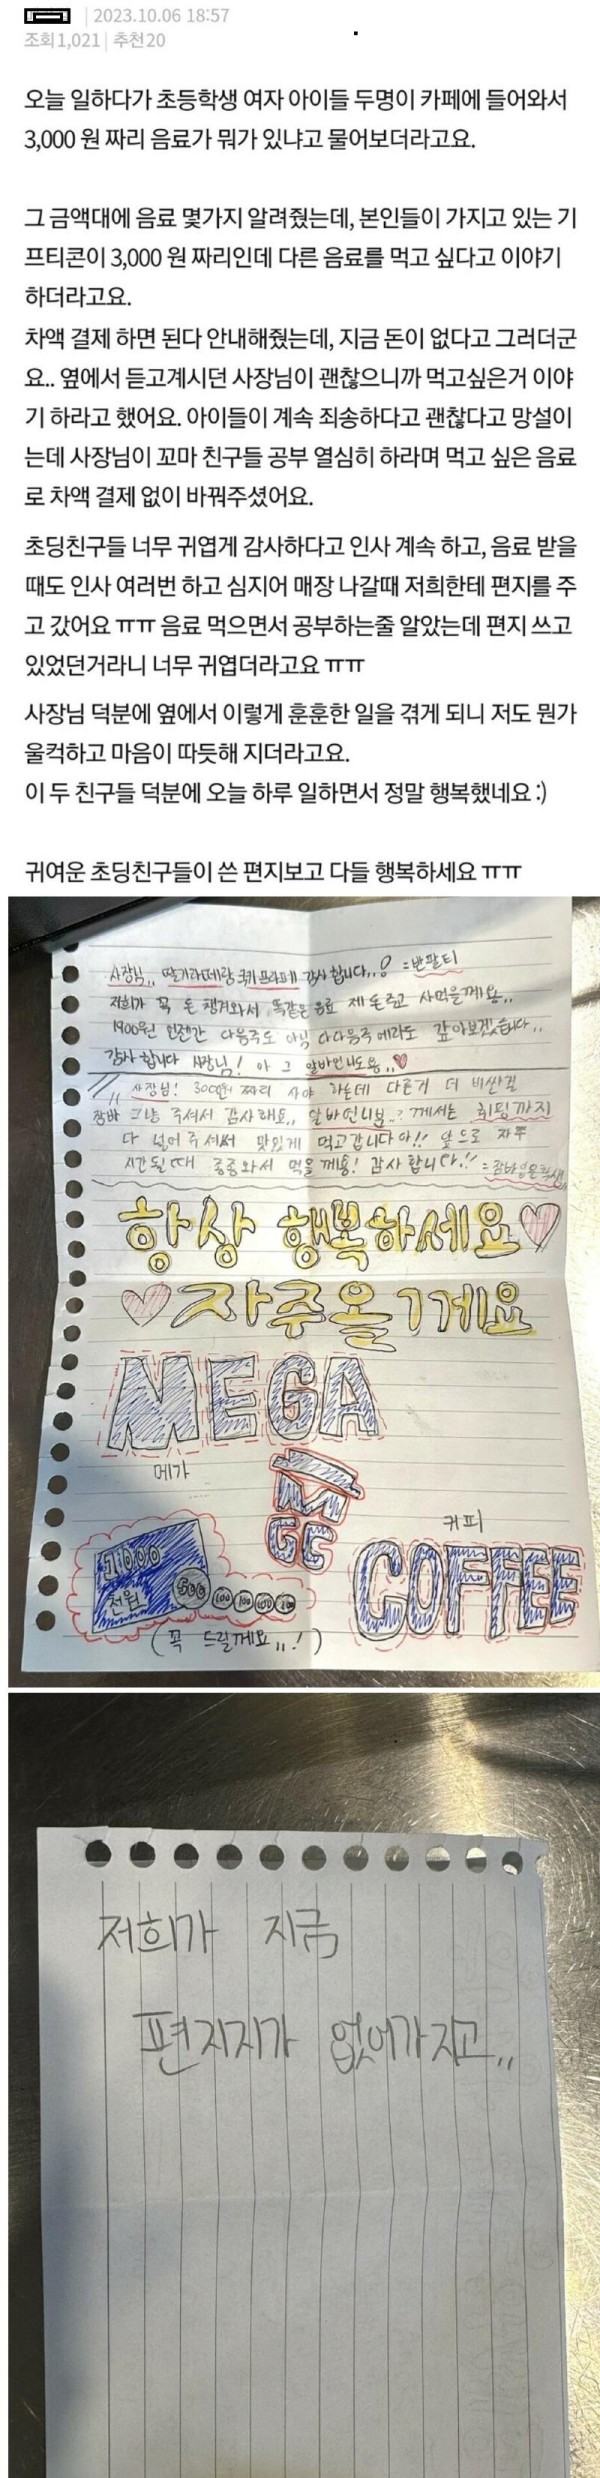 2023.10.06 18:57
조회 1,021 | 추천 20
오늘 일하다가 초등학생 여자 아이들 두명이 카페에 들어와서
3,000 원 짜리 음료가 뭐가 있냐고 물어보더라고요.
그 금액대에 음료 몇가지 알려줬는데, 본인들이 가지고 있는 기
프티콘이 3,000 원 짜리인데 다른 음료를 먹고 싶다고 이야기
하더라고요.
차액 결제 하면 된다 안내해줬는데, 지금 돈이 없다고 그러더군
요.. 옆에서 듣고계시던 사장님이 괜찮으니까 먹고싶은거 이야
기 하라고 했어요. 아이들이 계속 죄송하다고 괜찮다고 망설이
는데 사장님이 꼬마 친구들 공부 열심히 하라며 먹고 싶은 음료
로 차액 결제 없이 바꿔주셨어요.
초딩친구들 너무 귀엽게 감사하다고 인사 계속 하고, 음료 받을
때도 인사 여러번 하고 심지어 매장 나갈때 저희한테 편지를 주
고 갔어요 ㅠㅠ 음료 먹으면서 공부하는줄 알았는데 편지 쓰고
있었던거라니 너무 귀엽더라고요 ㅠㅠ
사장님 덕분에 옆에서 이렇게 훈훈한 일을 겪게 되니 저도 뭔가
울컥하고 마음이 따듯해 지더라고요.
이 두 친구들 덕분에 오늘 하루 일하면서 정말 행복했네요 :)
귀여운 초딩친구들이 쓴 편지보고 다들 행복하세요 ㅠㅠ
사장님,, 딸기라떼랑 쿠키프라페 감사합니다,,! =반팔티
저희가 꼭 돈 챙겨와서 똑같은 음료 제 돈주고 사먹을께용,,
1900원 언젠간 다음주도 아님 다다음주에라도 갚아보겠습니다,,
감사합니다 사장님! 아 그 알바언니도용,,♥
사장님! 3000원 짜리 사야 하는데 다른거 더 비싼걸
그냥 주셔서 감사해요,, 알바언니분..? 께서는 휘핑까지
다 넣어주셔서 맛있게 먹고갑니다아!! 앞으로 자주
시간될때 종종와서 먹을께용! 감사합니다!!
항상 행복하세요♡
♡자주올게요
MEGA
메가
MGC
커피
COFFEE
1000
천원
500 100 100 100 100
(꼭 드릴께요,,!)
저희가 지금
편지지가 없어가지고,,